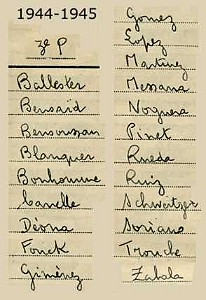 1944-1945
2e P
Ballester
Bensaïd
Benoussan
Blanquer
Bonhomme
Canelle
Déona
Fonck
Giménez
Gomez
Lopez
Martinez
Messana
Noguera
Pinet
Rueda
Ruiz
Schweitzer
Soriano
Troncle
Zabala